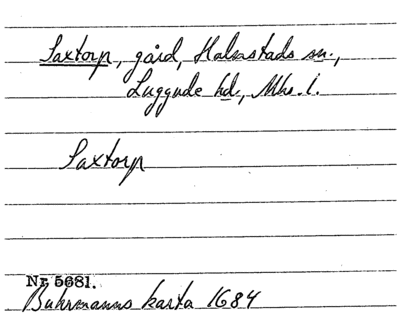 Saxtorp, gård, Halmstads sn.,
Luggude hd., Mhs. l.
Saxtorp
Nr 5681.
Buhrmanns karta 1684